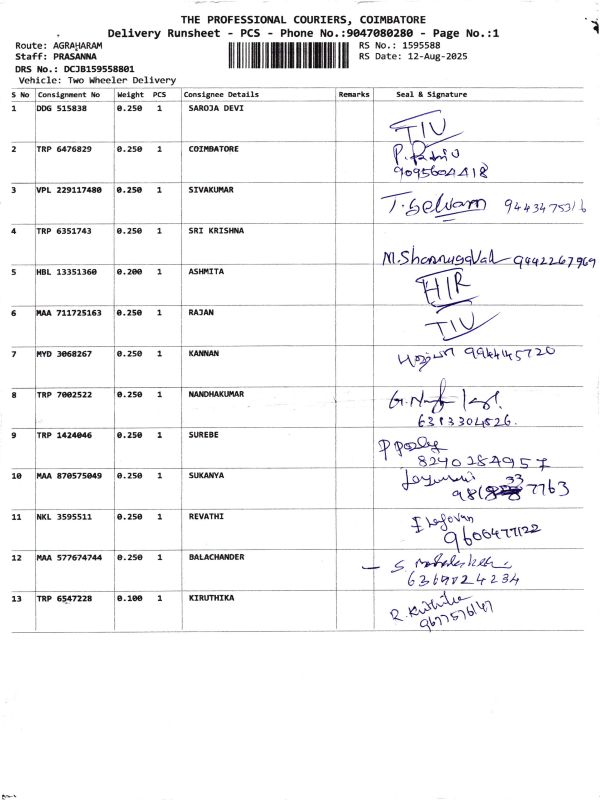 THE PROFESSIONAL COURIERS, COIMBATORE
Delivery Runsheet - PCS - Phone No.:9047080280 - Page No.:1
Route: AGRAHARAM
RS No.: 1595588
Staff: PRASANNA
RS Date: 12-Aug-2025
DRS No.: DCJB159558801
Vehicle: Two Wheeler Delivery
S No Consignment No Weight PCS Consignee Details Remarks Seal & Signature
1 DDG 515838 0.250 1 SAROJA DEVI
TIU
2 TRP 6476829 0.250 1 COIMBATORE
9095604418
3 VPL 229117480 0.250 1 SIVAKUMAR
T. Selvam 9443475316
4 TRP 6351743 0.250 1 SRI KRISHNA
M. Shanmugavel 9442267969
5 HBL 13351360 0.200 1 ASHMITA
HIR
6 MAA 711725163 0.250 1 RAJAN
TIU
7 MYD 3068267 0.250 1 KANNAN
9944145720
8 TRP 7002522 0.250 1 NANDHAKUMAR
6383304526.
9 TRP 1424046 0.250 1 SUREBE
8240284957
10 MAA 870575049 0.250 1 SUKANYA
33
7763
11 NKL 3595511 0.250 1 REVATHI
9606477122
12 MAA 577674744 0.250 1 BALACHANDER
13 TRP 6547228 0.100 1 KIRUTHIKA
9677576147